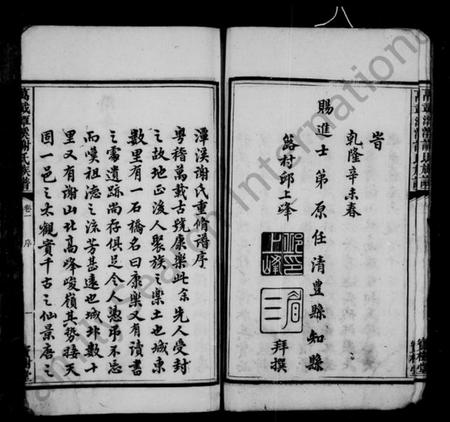 旹
乾隆辛未春
賜進士第原任清豐縣知縣
邱上峰
拜撰
萬載潭溪謝氏族譜
卷一 序
潭溪謝氏重脩譜序
粵稽萬載古號康樂此余先人受封
之故地正後人聚族之樂土也城東
數里有一石橋名曰康樂又有讀書
之處遺跡尚存俱足令人憑弔不忘
而嘆祖德之流芳甚遠也城北數十
里又有謝山北高峰峻嶺其勢接天
固一邑之大觀實千古之仙景唐之